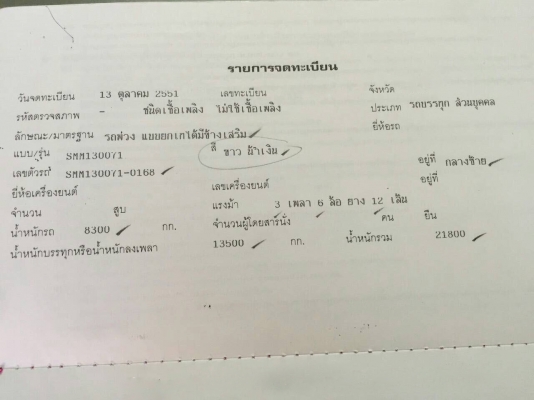 รายการจดทะเบียน
วันจดทะเบียน 13 ตุลาคม 2551 เลขทะเบียน จังหวัด
รหัสตรวจสภาพ - ชนิดเชื้อเพลิง ไม่ใช้เชื้อเพลิง ประเภท รถบรรทุก ส่วนบุคคล
ลักษณะ/มาตรฐาน รถพ่วง แบบยกเทได้มีข้างเสริม ยี่ห้อรถ
แบบ/รุ่น SMM130071 สี ขาว น้ำเงิน
เลขตัวรถ SMM130071-0168 อยู่ที่ กลางซ้าย
ยี่ห้อเครื่องยนต์ เลขเครื่องยนต์ อยู่ที่
จำนวน สูบ แรงม้า 3 เพลา 6 ล้อ ยาง 12 เส้น
น้ำหนักรถ 8300 กก. จำนวนผู้โดยสารนั่ง คน ยืน
น้ำหนักบรรทุกหรือน้ำหนักลงเพลา 13500 กก. น้ำหนักรวม 21800